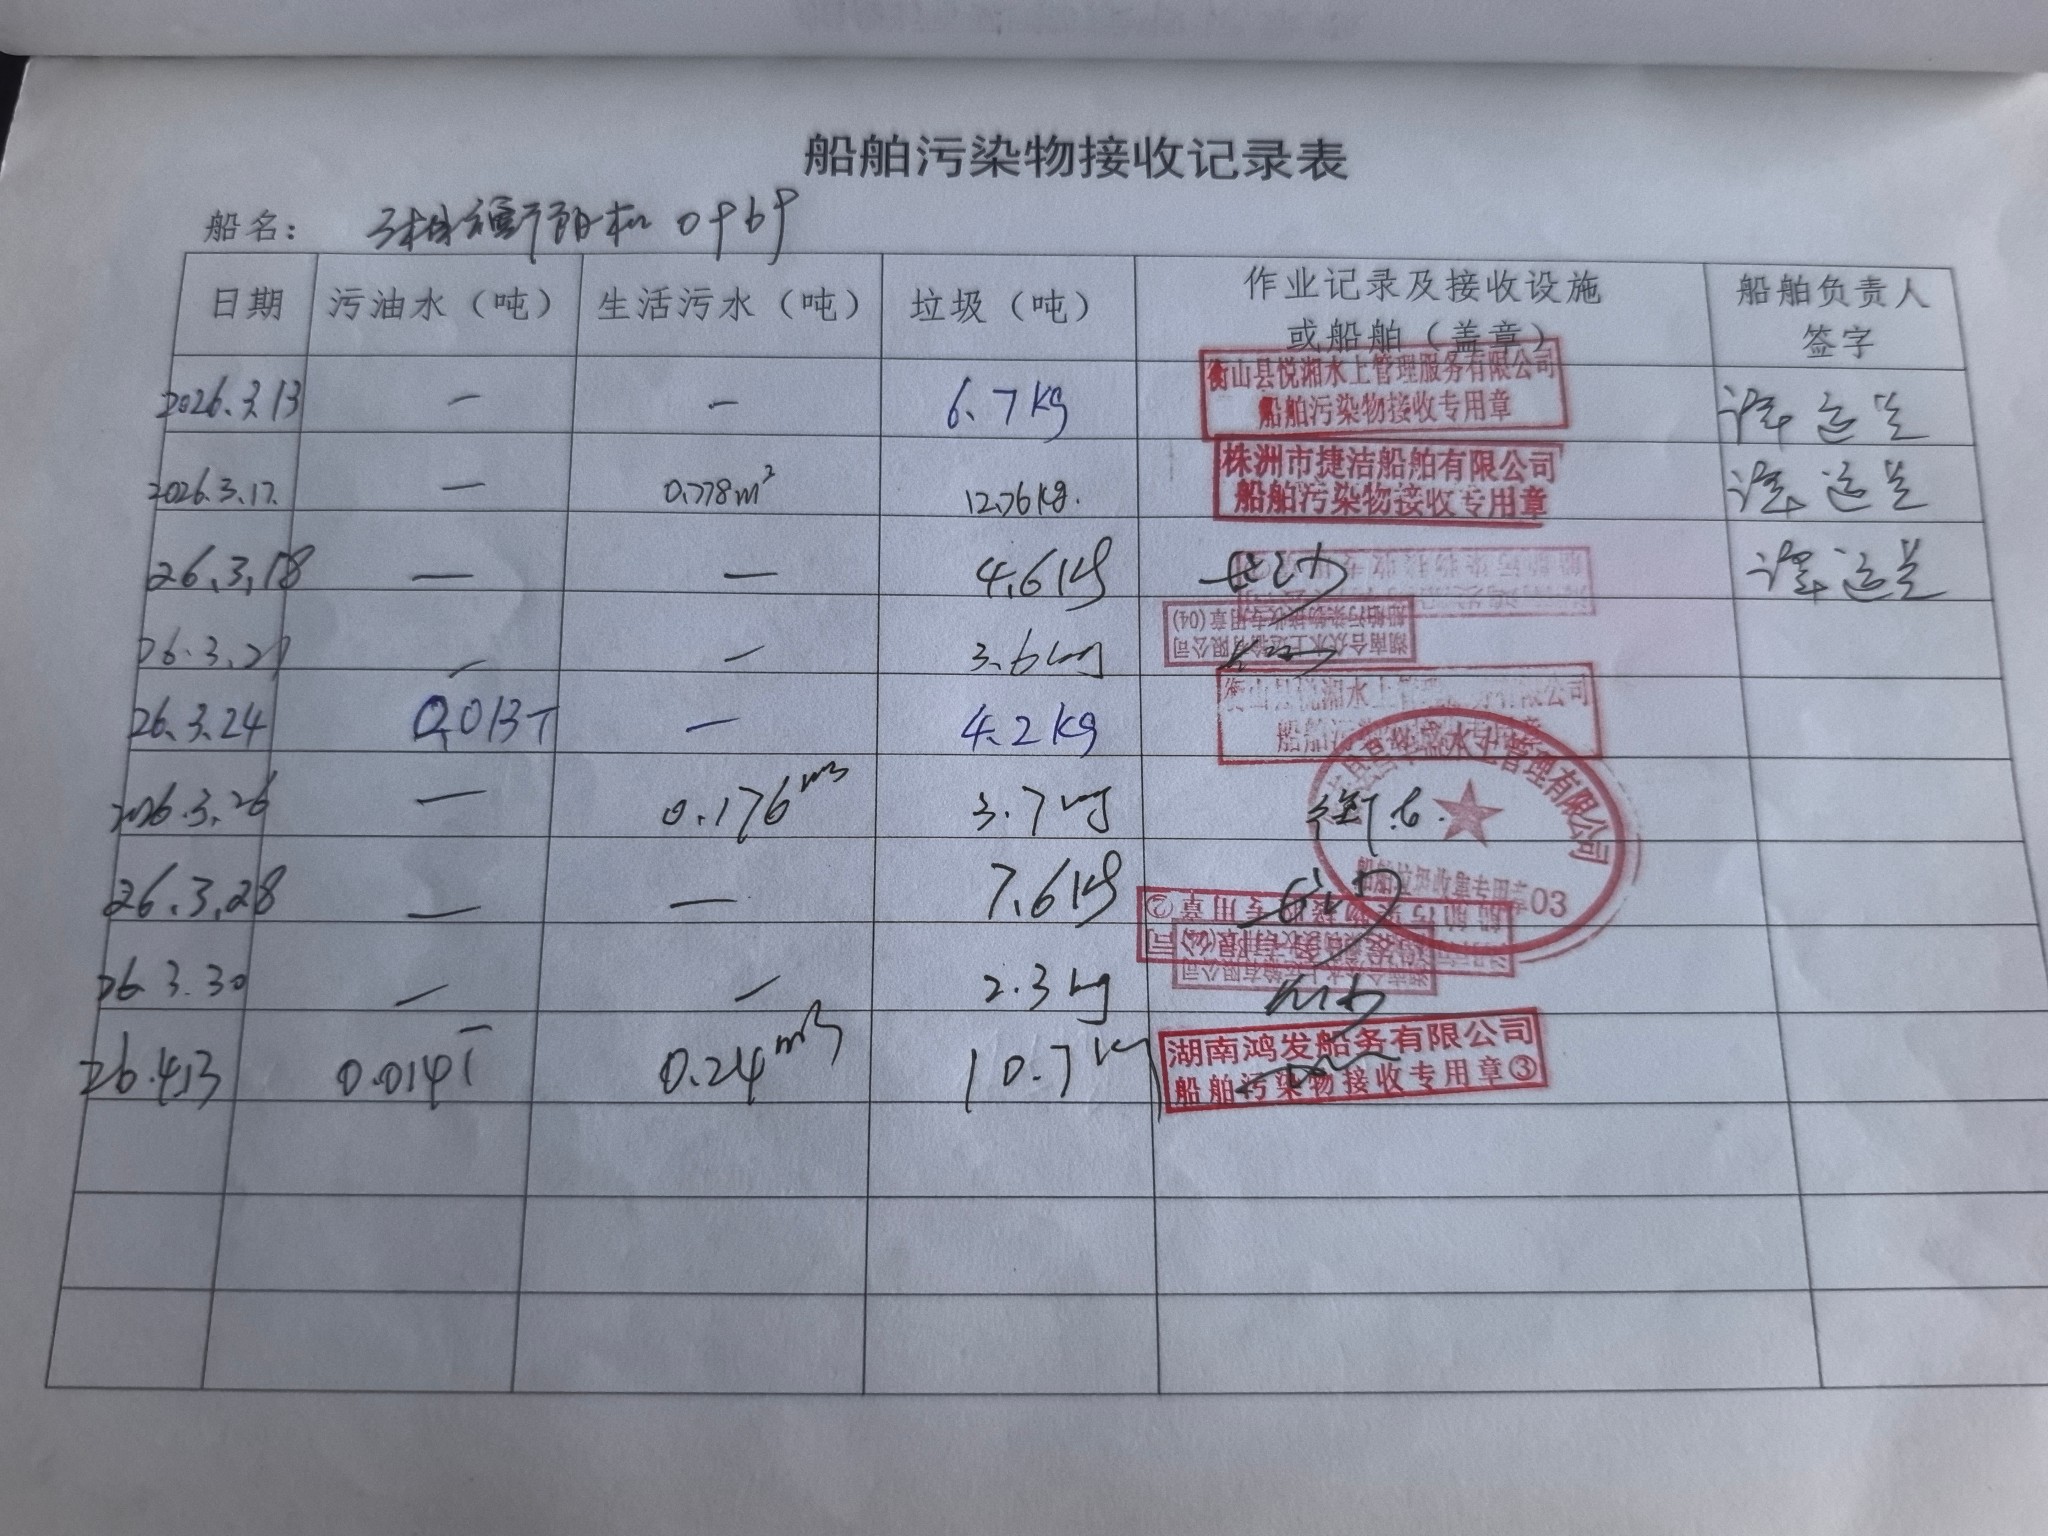 船舶污染物接收记录表
船名：
日期 污油水（吨） 生活污水（吨） 垃圾（吨） 作业记录及接收设施 船舶负责人
或船舶（盖章） 签字
2026.3.13 — — 6.7kg
衡山县悦湘水上管理服务有限公司
船舶污染物接收专用章
2026.3.17. — 0.778m² 12.76kg.
株洲市捷洁船舶有限公司
船舶污染物接收专用章
26.3.18 — — 4.6kg
26.3.21 — — 3.6kg
湖南合众水上运输有限公司
船舶污染物接收专用章(04)
26.3.24 0.013T — 4.2kg
衡山县悦湘水上管理服务有限公司
船舶污染物接收专用章
2026.3.26 — 0.176m3 3.7kg
水上管理有限公司
船舶垃圾收集专用章03
26.3.28 — — 7.6kg
26.3.30 — — 2.3kg
26.4.3 0.014T 0.24m3 10.7kg
湖南鸿发船务有限公司
船舶污染物接收专用章③